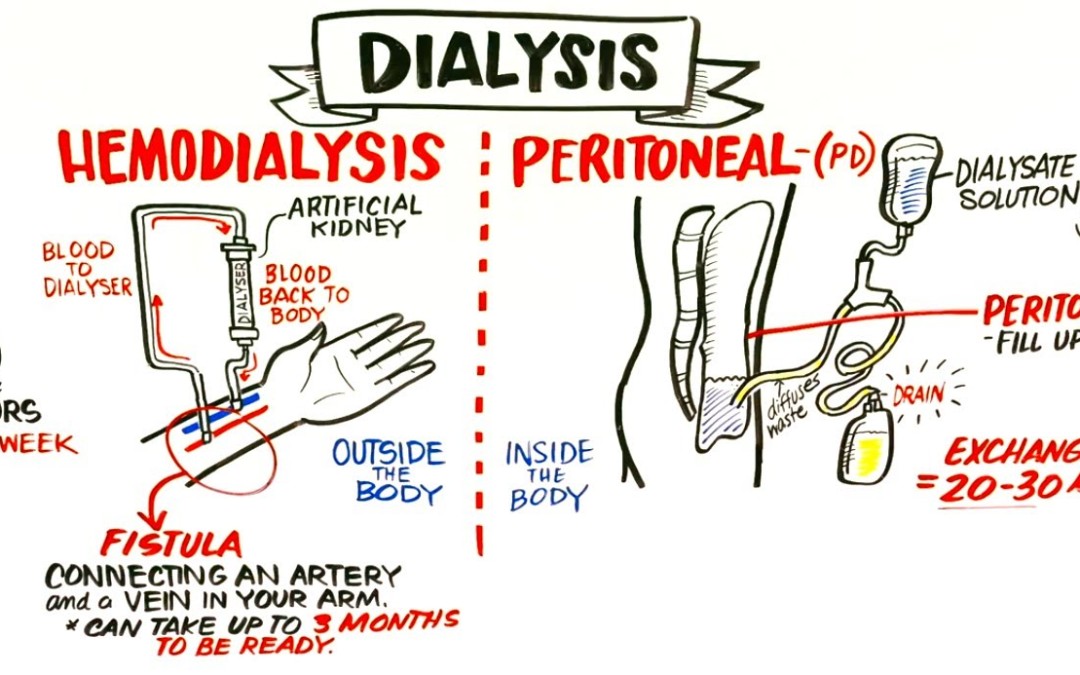 DIALYSIS
HEMODIALYSIS
ARTIFICIAL
KIDNEY
BLOOD
TO
DIALYSER
DIALYSER
BLOOD
BACK TO
BODY
RS
WEEK
OUTSIDE
THE
BODY
FISTULA
CONNECTING AN ARTERY
and a VEIN IN YOUR ARM.
* CAN TAKE UP TO 3 MONTHS
TO BE READY.
PERITONEAL-(PD)
DIALYSATE
SOLUTION
PERITO
-FILL UP
diffuses
waste
DRAIN
INSIDE
THE
BODY
EXCHANG
= 20-30